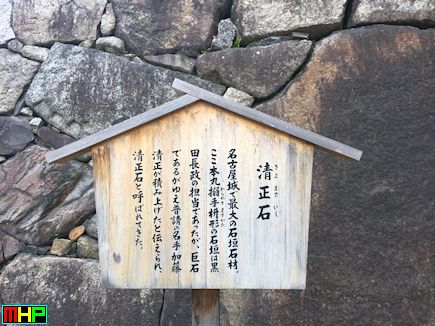 清正石
きよまさいし
名古屋城で最大の石垣石材。
ここ本丸搦手枡形の石垣は黒
田長政の担当であったが、巨石
であるがゆえ普請の名手加藤
清正が積み上げたと伝えられ、
清正石と呼ばれてきた。
MHP